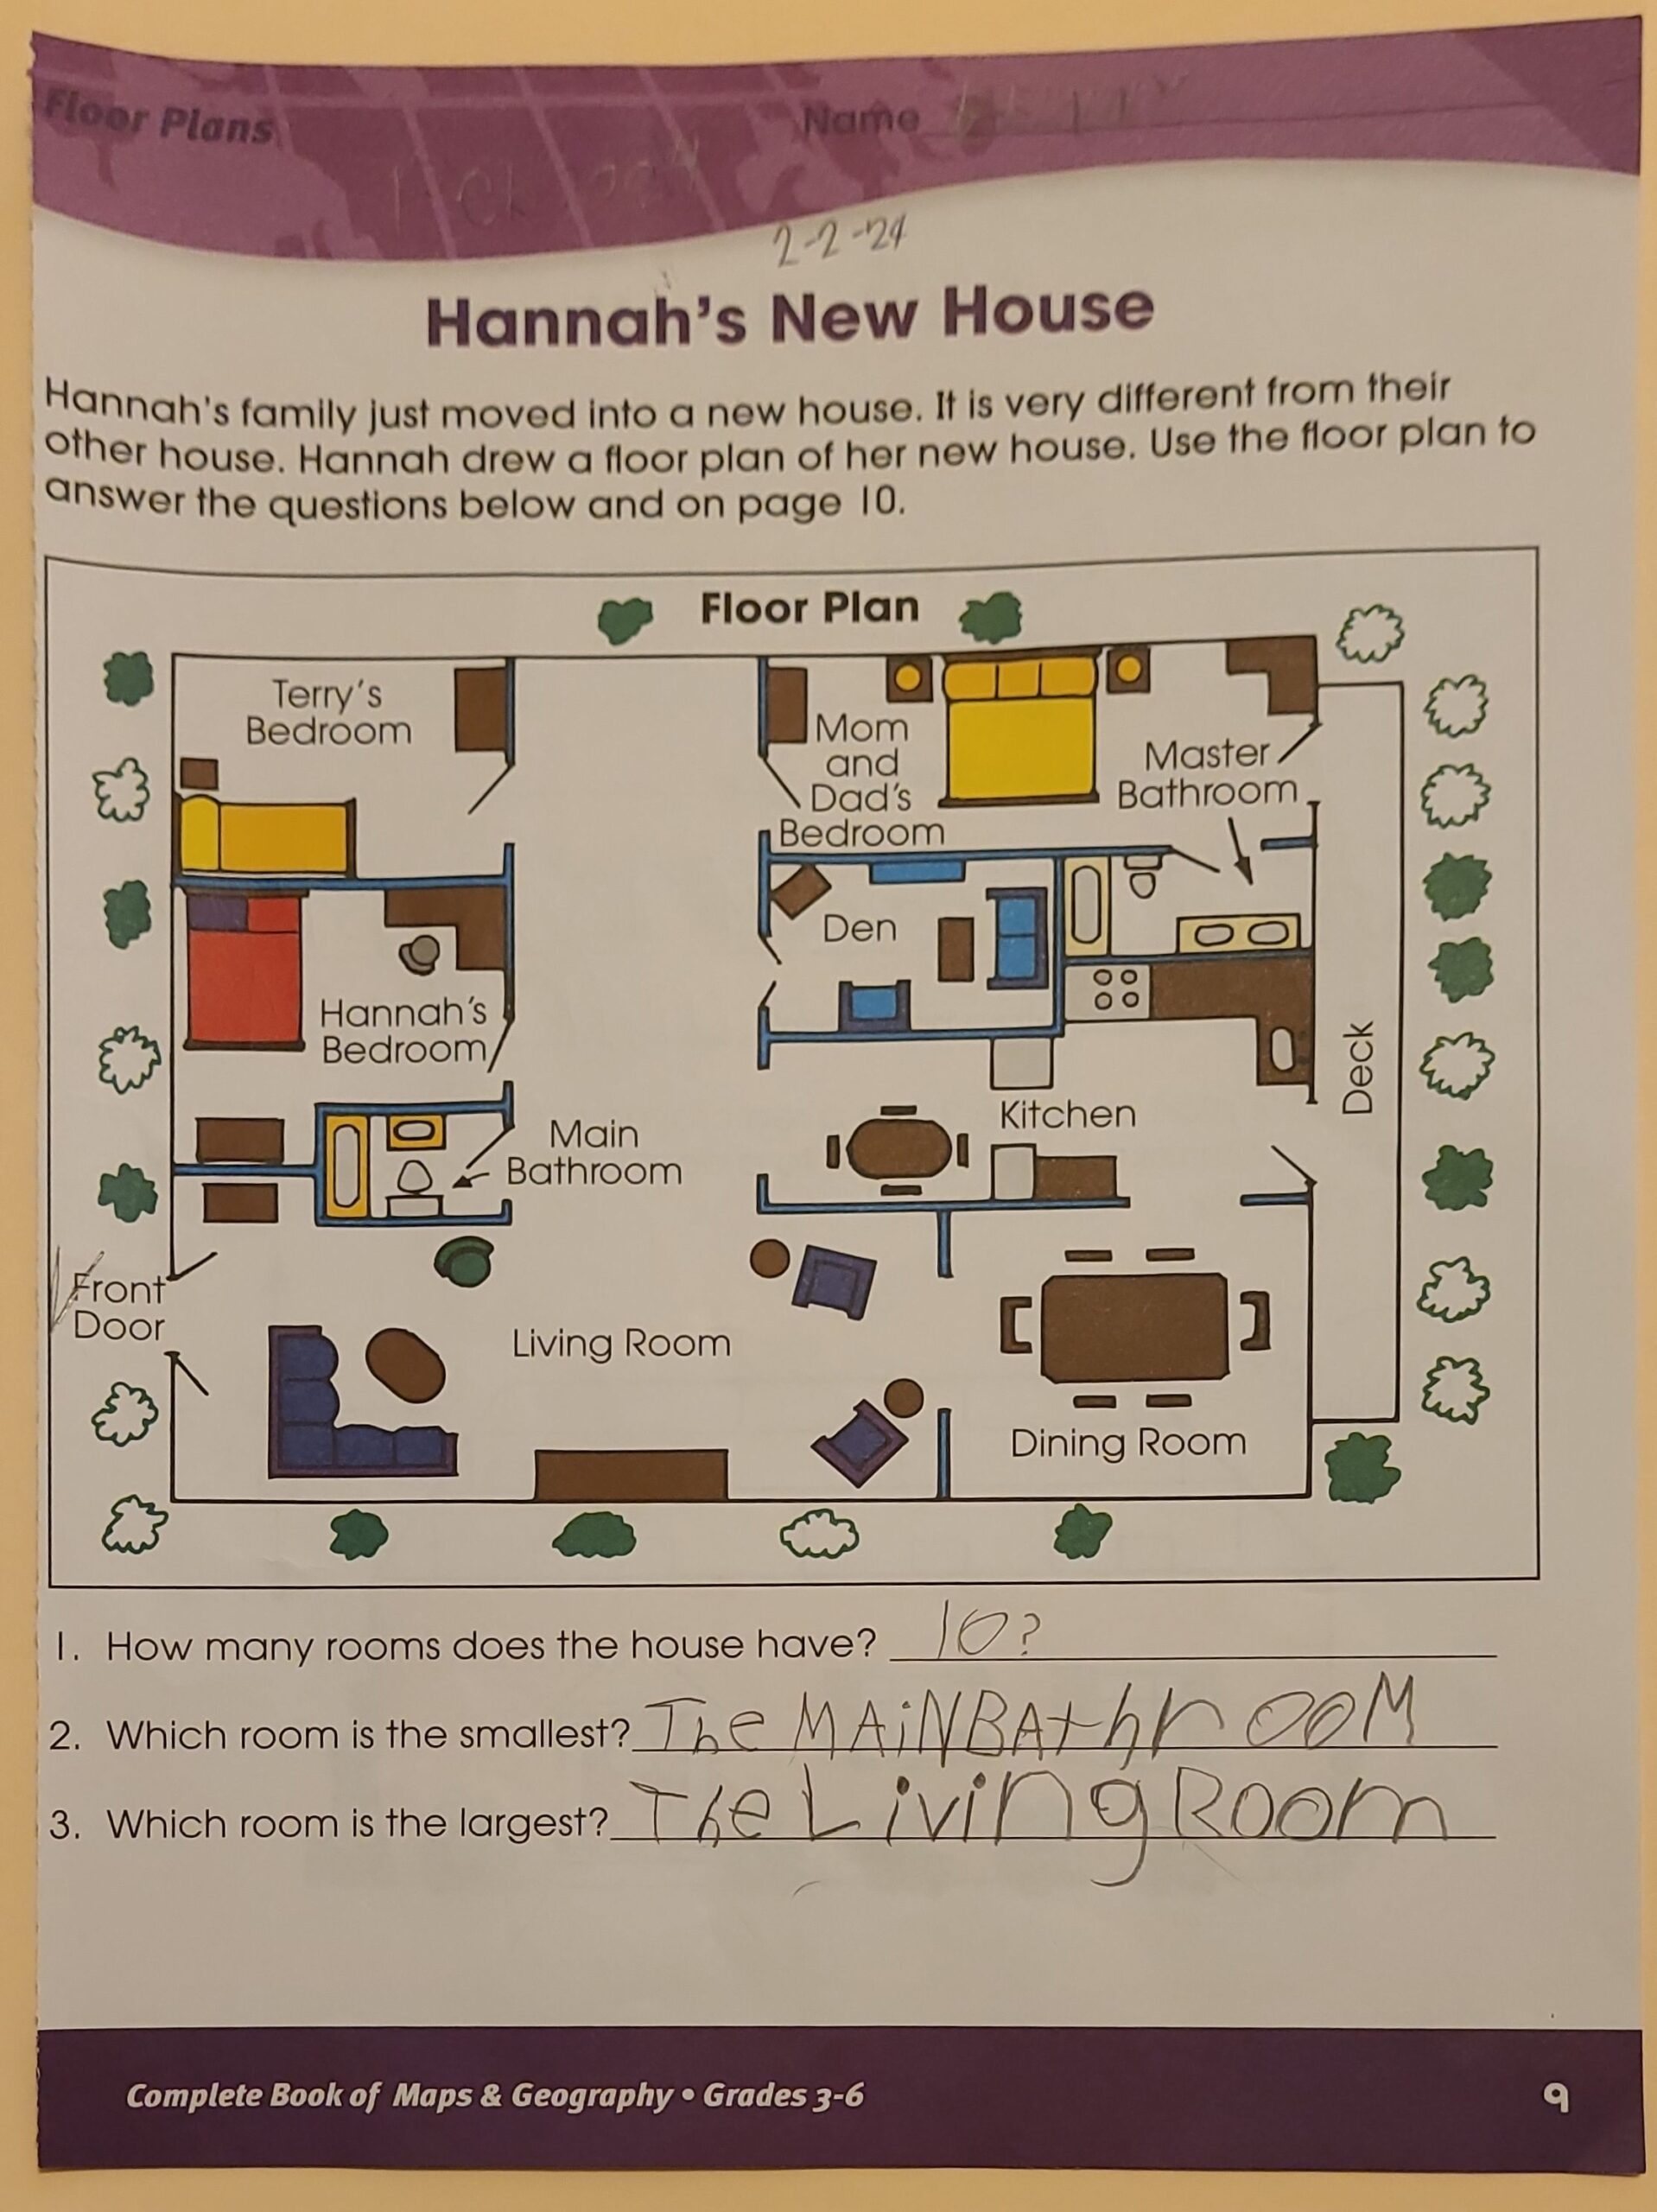 Floor Plans
Name
2-2-24
Hannah's New House
Hannah's family just moved into a new house. It is very different from their
other house. Hannah drew a floor plan of her new house. Use the floor plan to
answer the questions below and on page 10.
Floor Plan
Terry's
Bedroom
Mom
and
Dad's
Bedroom
Master
Bathroom
Den
Hannah's
Bedroom
Deck
Kitchen
Main
Bathroom
Front
Door
Living Room
Dining Room
1. How many rooms does the house have? 10?
2. Which room is the smallest? The MAiN BAthrooM
3. Which room is the largest? The Living Room
Complete Book of Maps & Geography • Grades 3-6
9